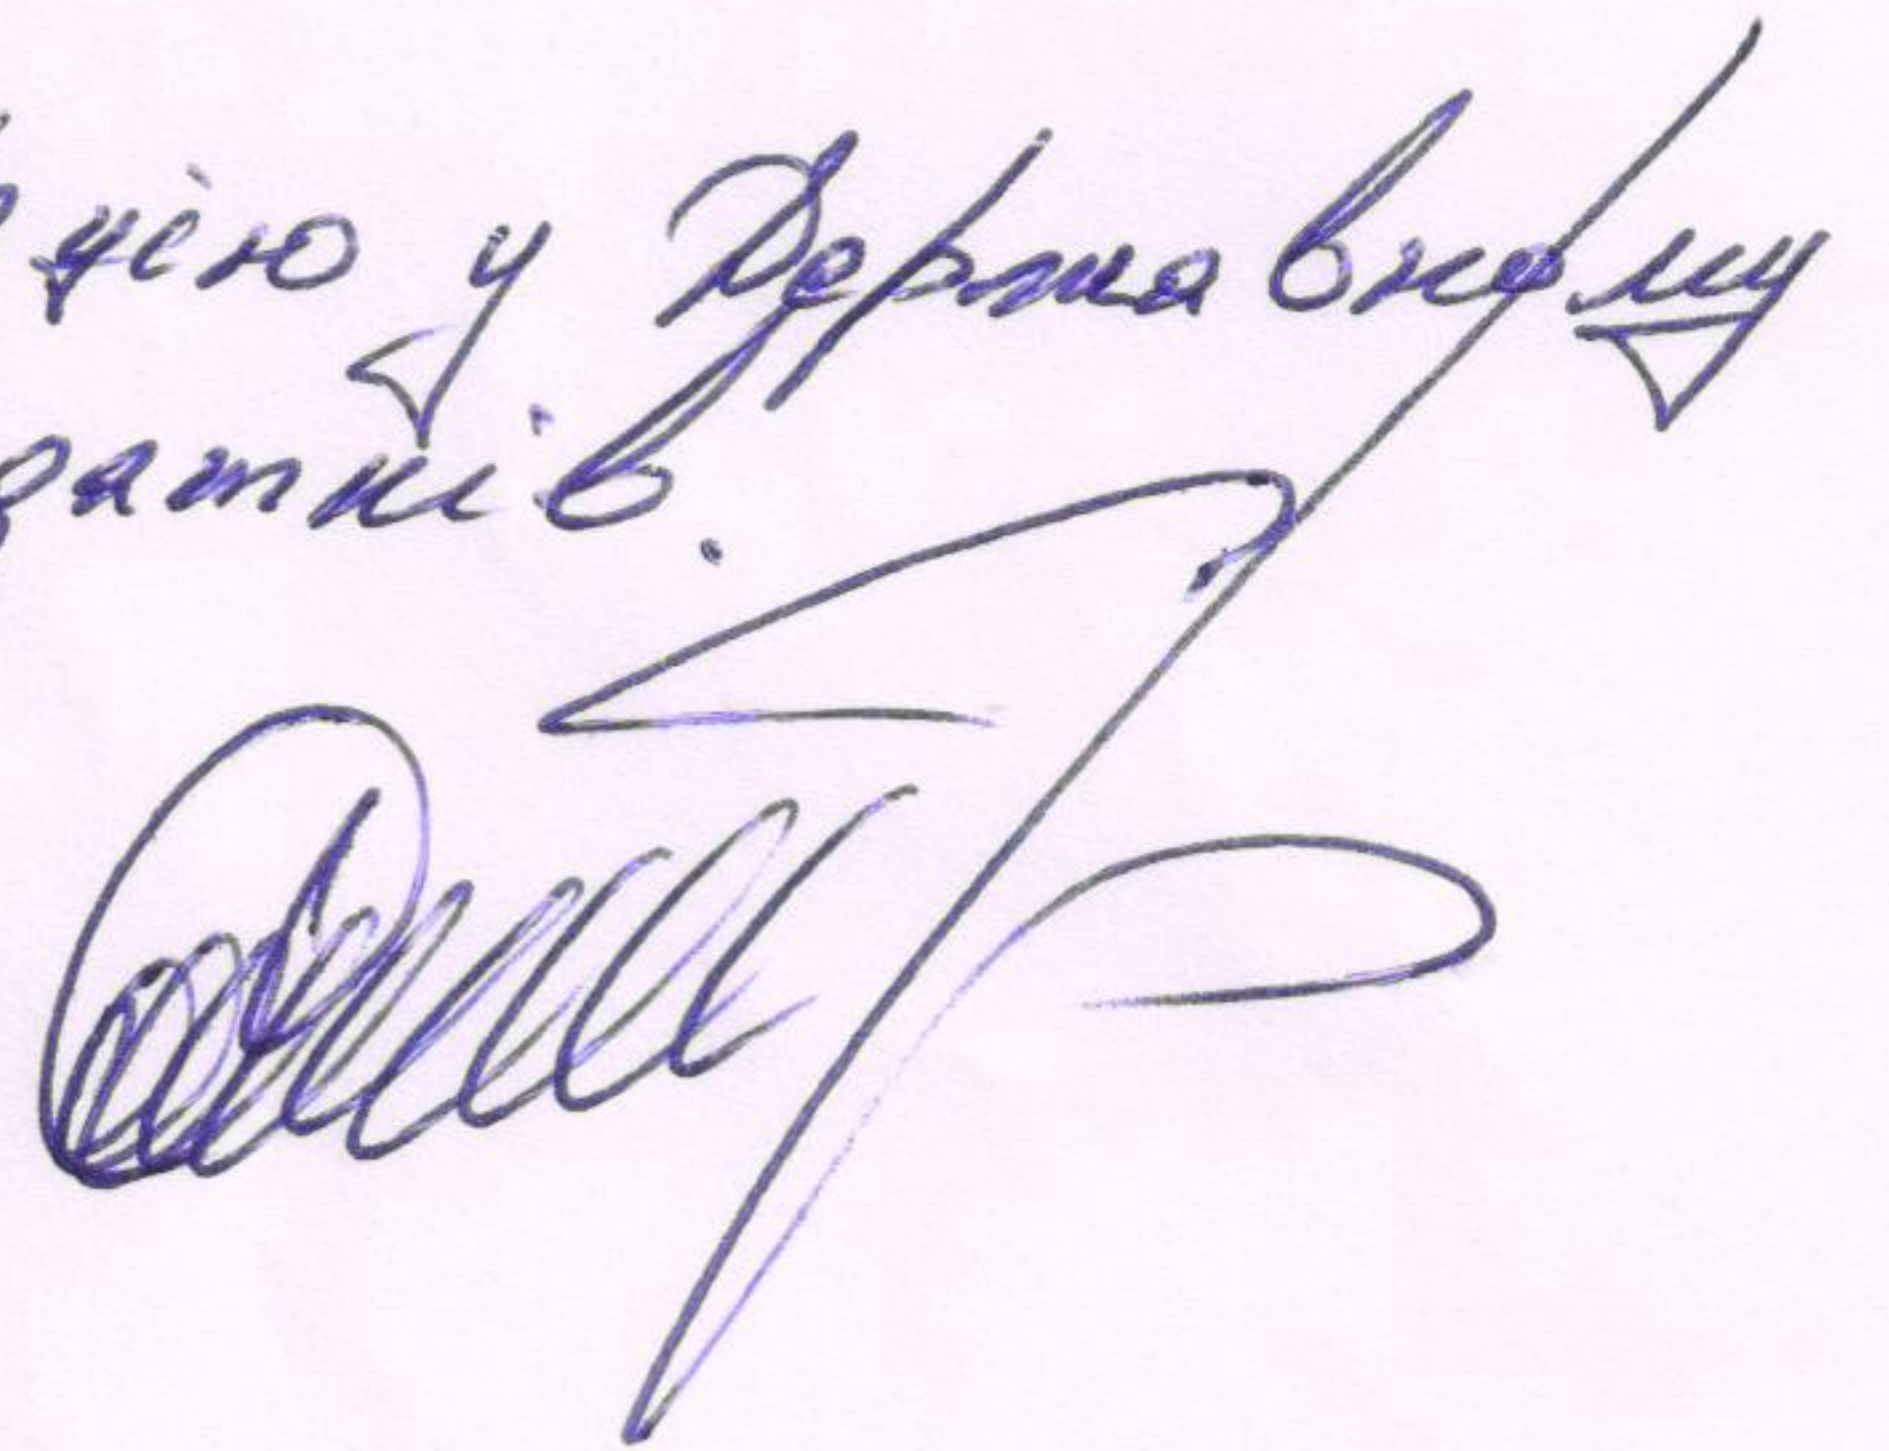 цією у Державному
датків.